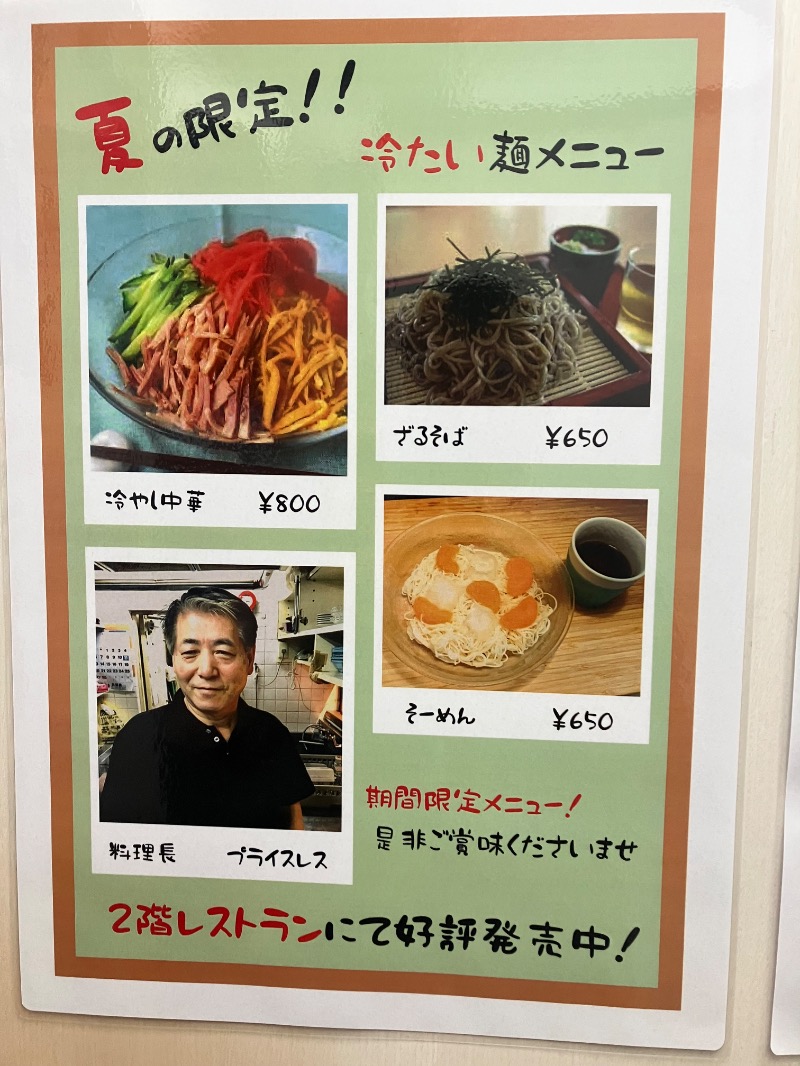 夏の限定!!
冷たい麺メニュー
冷やし中華 ¥800
ざるそば ¥650
そーめん ¥650
料理長 プライスレス
期間限定メニュー!
是非ご賞味くださいませ
2階レストランにて好評発売中!